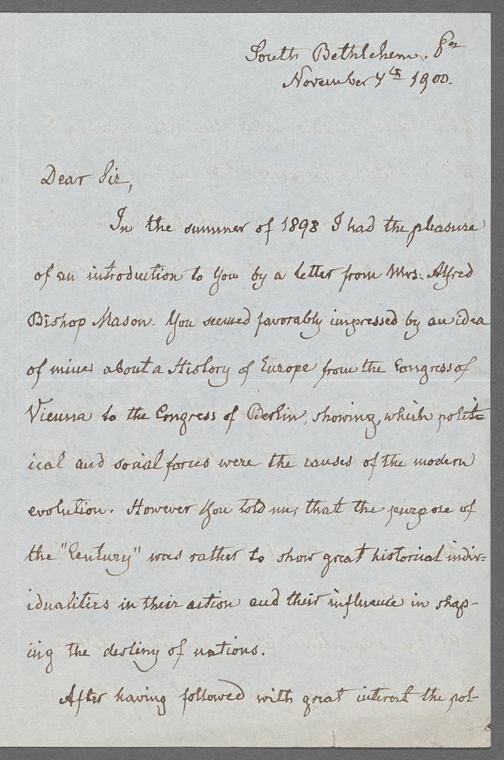 South Bethlehem. Pa
November 7th 1900.
Dear Sir,
In the summer of 1898 I had the pleasure
of an introduction to you by a letter from Mrs. Alfred
Bishop Mason. You seemed favorably impressed by an idea
of mine about a History of Europe from the Congress of
Vienna to the Congress of Berlin, showing, which polit=
ical and social forces were the causes of the modern
evolution. However you told me, that the purpose of
the "Century" was rather to show great historical indiv=
idualities in their action and their influence in shap-
ing the destiny of nations.
After having followed with great interest the pol-